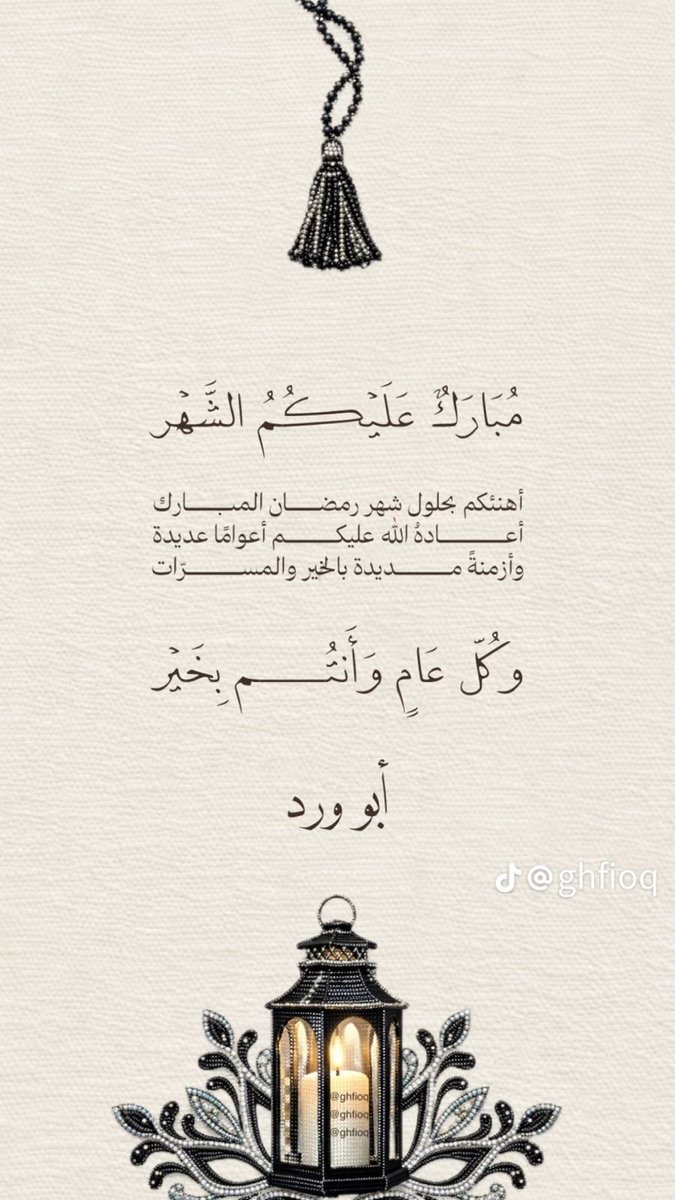 مُبَارَكٌ عَلَيْكُمُ الشَّهْر
أهنئكم بحلول شهر رمضـــان المبـــارك
أعـــــادهُ الله عليكـــــم أعوامًا عديدة
وأزمنةً مـــــديدة بالخير والمســـــرّات
وَكُلّ عَامٍ وَأَنتُـــــم بِخَيْر
أبو ورد
@ghfioq
@ghfioq
@ghfioq
@ghfioq